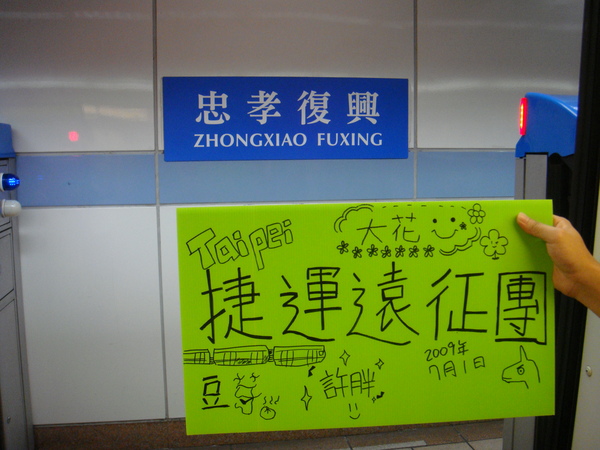 忠孝復興
ZHONGXIAO FUXING
Taipei
大花
捷運遠征團
2009年
7月1日
豆芽
許胖